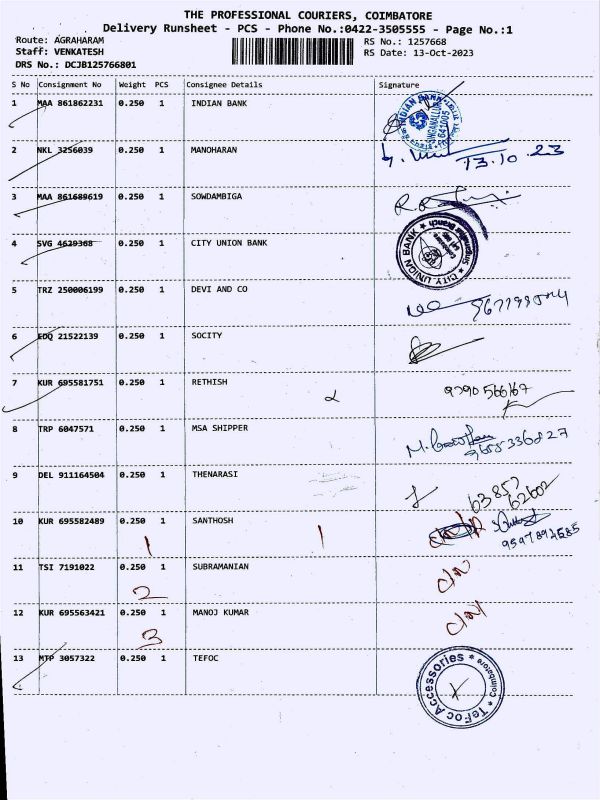 THE PROFESSIONAL COURIERS, COIMBATORE
Delivery Runsheet - PCS - Phone No.:0422-3505555 - Page No.:1
Route: AGRAHARAM RS No.: 1257668
Staff: VENKATESH RS Date: 13-Oct-2023
DRS No.: DCJB125766801
S No Consignment No Weight PCS Consignee Details Signature
1 MAA 861862231 0.250 1 INDIAN BANK
INDIAN BANK SINGANALLUR 641005
2 NKL 3256039 0.250 1 MANOHARAN
13.10.23
3 MAA 861689619 0.250 1 SOWDAMBIGA
4 SVG 4629368 0.250 1 CITY UNION BANK
CITY UNION BANK
5 TRZ 250006199 0.250 1 DEVI AND CO
6 EDQ 21522139 0.250 1 SOCITY
7 KUR 695581751 0.250 1 RETHISH
9790566167
8 TRP 6047571 0.250 1 MSA SHIPPER
9655336827
9 DEL 911164504 0.250 1 THENARASI
63857
62602
10 KUR 695582489 0.250 1 SANTHOSH
1 1
11 TSI 7191022 0.250 1 SUBRAMANIAN
2
12 KUR 695563421 0.250 1 MANOJ KUMAR
3
13 MTP 3057322 0.250 1 TEFOC
TeFoc Accessories * Coimbatore *